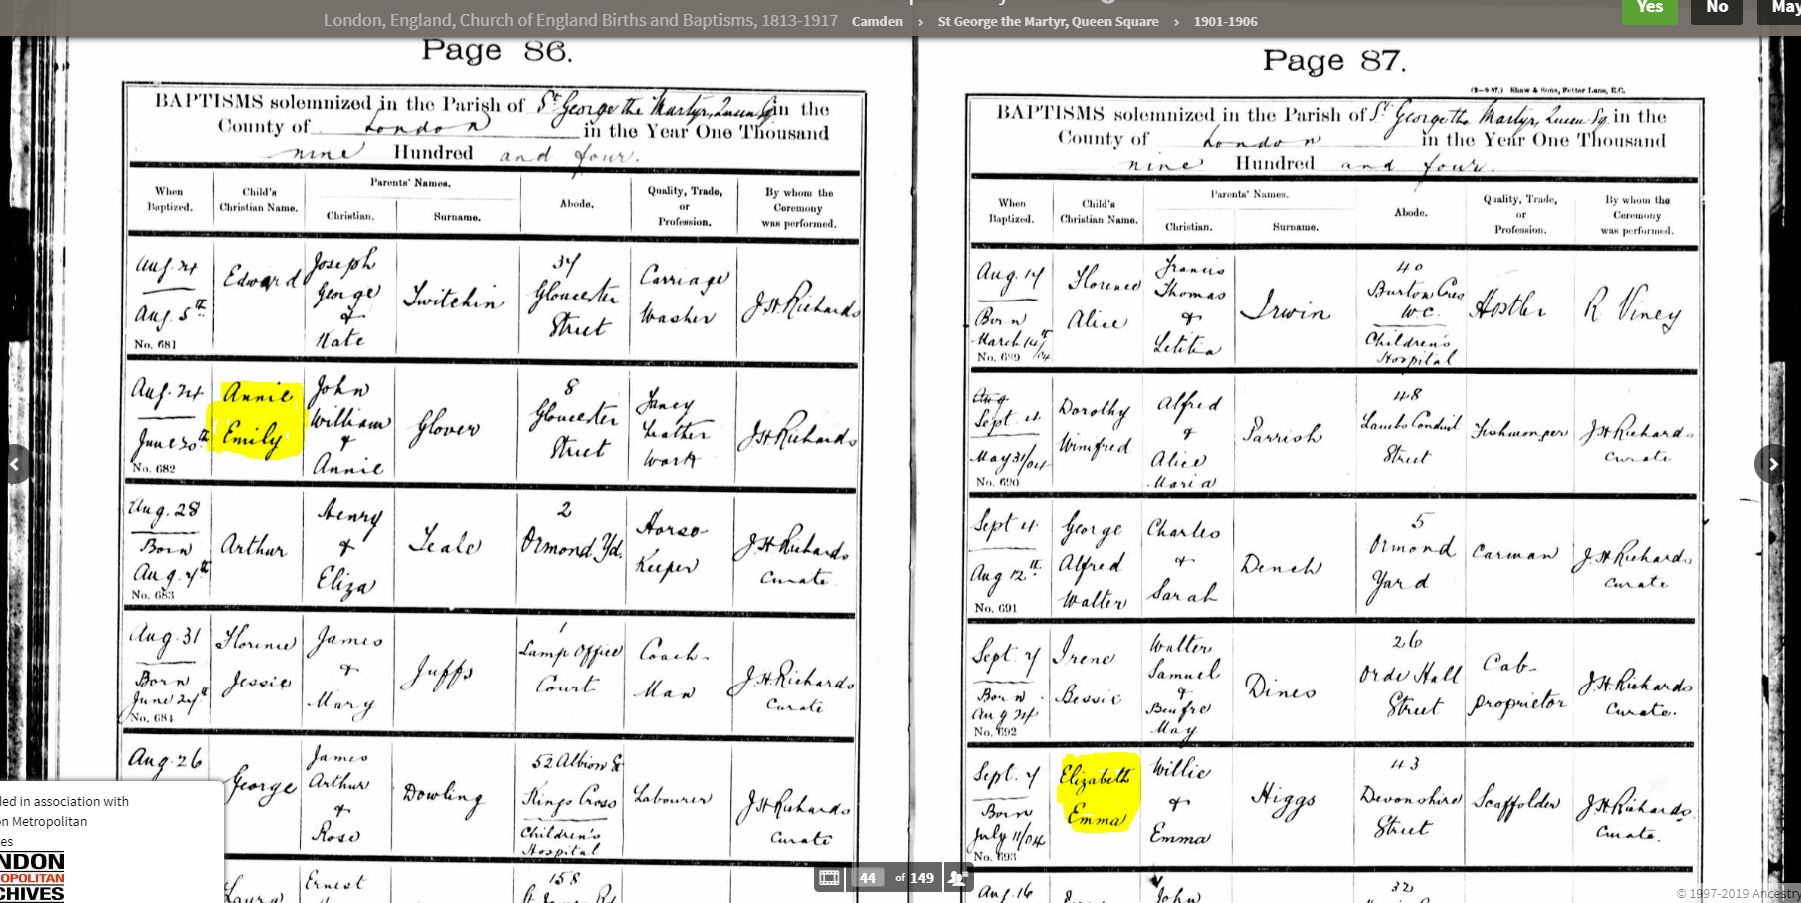 London, England, Church of England Births and Baptisms, 1813-1917 Camden › St George the Martyr, Queen Square › 1901-1906
Yes No May
Page 86.
BAPTISMS solemnized in the Parish of St George the Martyr, Queen Sq in the
County of London in the Year One Thousand
nine Hundred and four.
When Baptized.
Child's Christian Name.
Parents' Names.
Christian.
Surname.
Abode.
Quality, Trade, or Profession.
By whom the Ceremony was performed.
Aug. 24
Aug. 5th
No. 681
Edward
Joseph
George
&
Kate
Twitchin
34
Gloucester
Street
Carriage
Washer
J.H.Richards
Aug. 24
June 30th
No. 682
Annie
Emily
John
William
&
Annie
Glover
8
Gloucester
Street
Fancy
Leather
Work
J.H.Richards
Aug. 28
Born
No. 683
Arthur
Henry
&
Eliza
Teale
2
Ormond Yd.
Horse-
Keeper
J.H.Richards
Curate.
Aug. 31
Born
No. 684
Florence
Jessie
James
&
Mary
Juffs
1
Lamp Office
Court
Coach-
Man
J.H.Richards
Curate
Aug. 26
George
James
Arthur
&
Rose
Dowling
52 Albion St
Kings Cross
Children's
Hospital
Labourer
J.H.Richards
Curate
Laura
Ernest
158
Page 87.
Shaw & Sons, Fetter Lane, E.C.
BAPTISMS solemnized in the Parish of St George the Martyr, Queen Sq. in the
County of London in the Year One Thousand
nine Hundred and four.
When Baptized.
Child's Christian Name.
Parents' Names.
Christian.
Surname.
Abode.
Quality, Trade, or Profession.
By whom the Ceremony was performed.
Aug. 14
Born
March 14th/04
No. 689
Florence
Alice
Francis
Thomas
&
Letitia
Irwin
40
Burton Cres
W.C.
Children's
Hospital
Hostler
R Viney
Aug
Sept 4
May 31/04
No. 690
Dorothy
Winifred
Alfred
&
Alice
Maria
Parrish
48
Lambs Conduit
Street
Fishmonger
J.H.Richards
Curate
Sept 4
Aug 12th
No. 691
George
Alfred
Walter
Charles
&
Sarah
Dench
5
Ormond
Yard
Carman
J.H.Richards
Curate
Sept. 7
Born
Aug 24
No. 692
Irene
Bessie
Walter
Samuel
&
May
Dines
26
Orde Hall
Street
Cab-
proprietor
J.H.Richards
Curate.
Sept. 7
Born
July 11/04
No. 693
Elizabeth
Emma
Willie
&
Emma
Higgs
43
Devonshire
Street
Scaffolder
J.H.Richards.
Curate.
Aug. 16
John
32
ded in association with
on Metropolitan
es
NDON
OPOLITAN
CHIVES
44 of 149
© 1997-2019 Ancestry